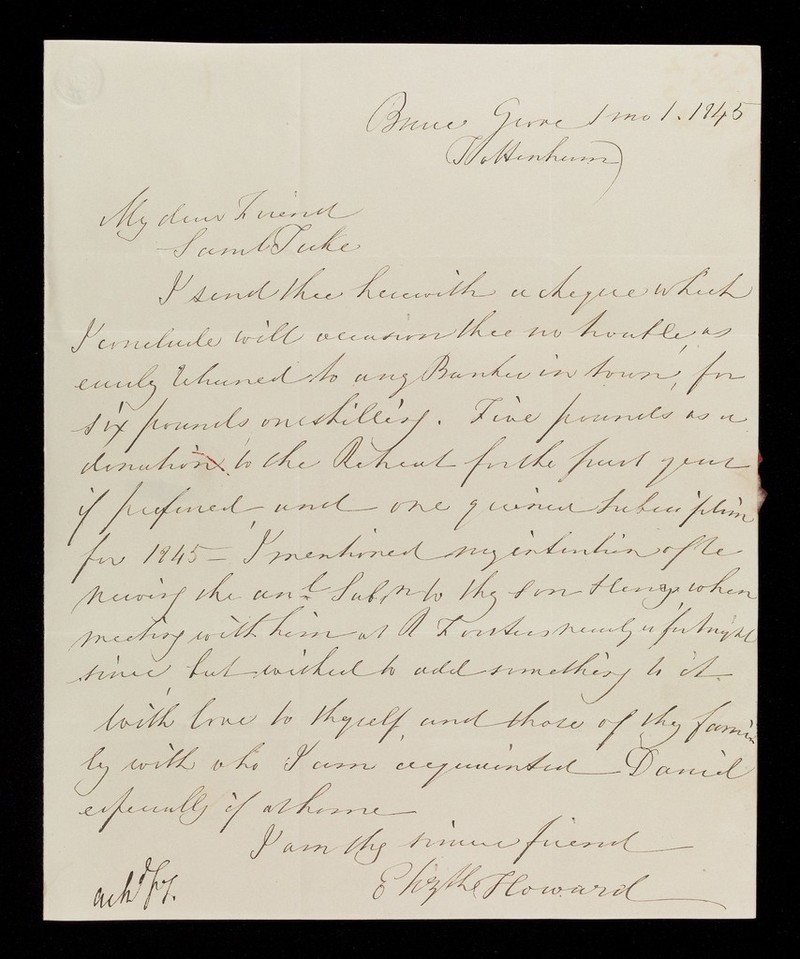 Bruce Grove 1 mo 1. 1845
Tottenham
My dear Friend
Saml Tuke
I send thee herewith a cheque which
I conclude will occasion thee no trouble, as
easily of any Banker in town, for
six pounds one shilling. Five pounds as a
donation to the Retreat for the past year
if prefered, and one guinea Subscription
for 1845 – I mentioned my intention of re
newing the anl. Subn to thy Son Henry when
meeting with him at R Forsters nearly a fortnight
since, but wished to add something to it
With love to thyself, and those of thy fami
ly with who I am acquainted Daniel
especially if at home
I am thy sincere friend
Elizth Howard
ackd